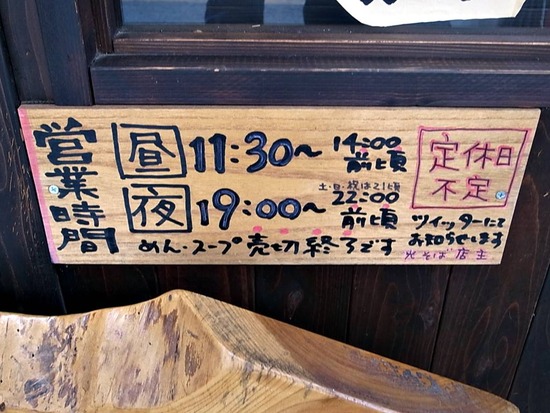 営業時間
昼 11:30〜14:00前頃
土・日・祝は21頃
夜 19:00〜22:00前頃
めん・スープ売切終了です
定休日
不定
ツイッターにて
お知らせします
そば店主